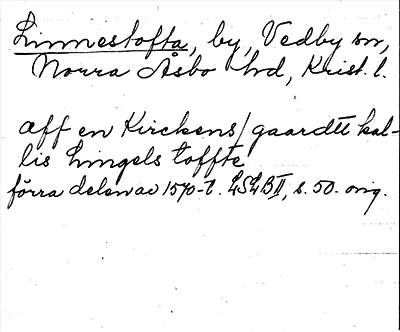 Linnestofta, by, Vedby sn,
Norra Åsbo hd, Krist. l.
aff en Kirckens/gaardtt kal-
lis Lingels toffte
förra delen av 1570-t. LSLB II, s. 50. orig.